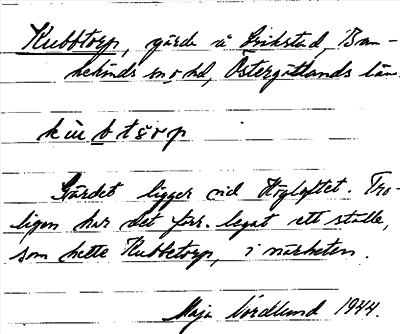 Kubbtorp, gärde å Erikstad, Ban-
kekinds sn o hd, Östergötlands län.
kùbtȯrp
Gärdet ligger vid Högloftet. Tro-
ligen har det förr legat ett ställe,
som hette Kubbetorp, i närheten.
Maja Nordlund 1944.